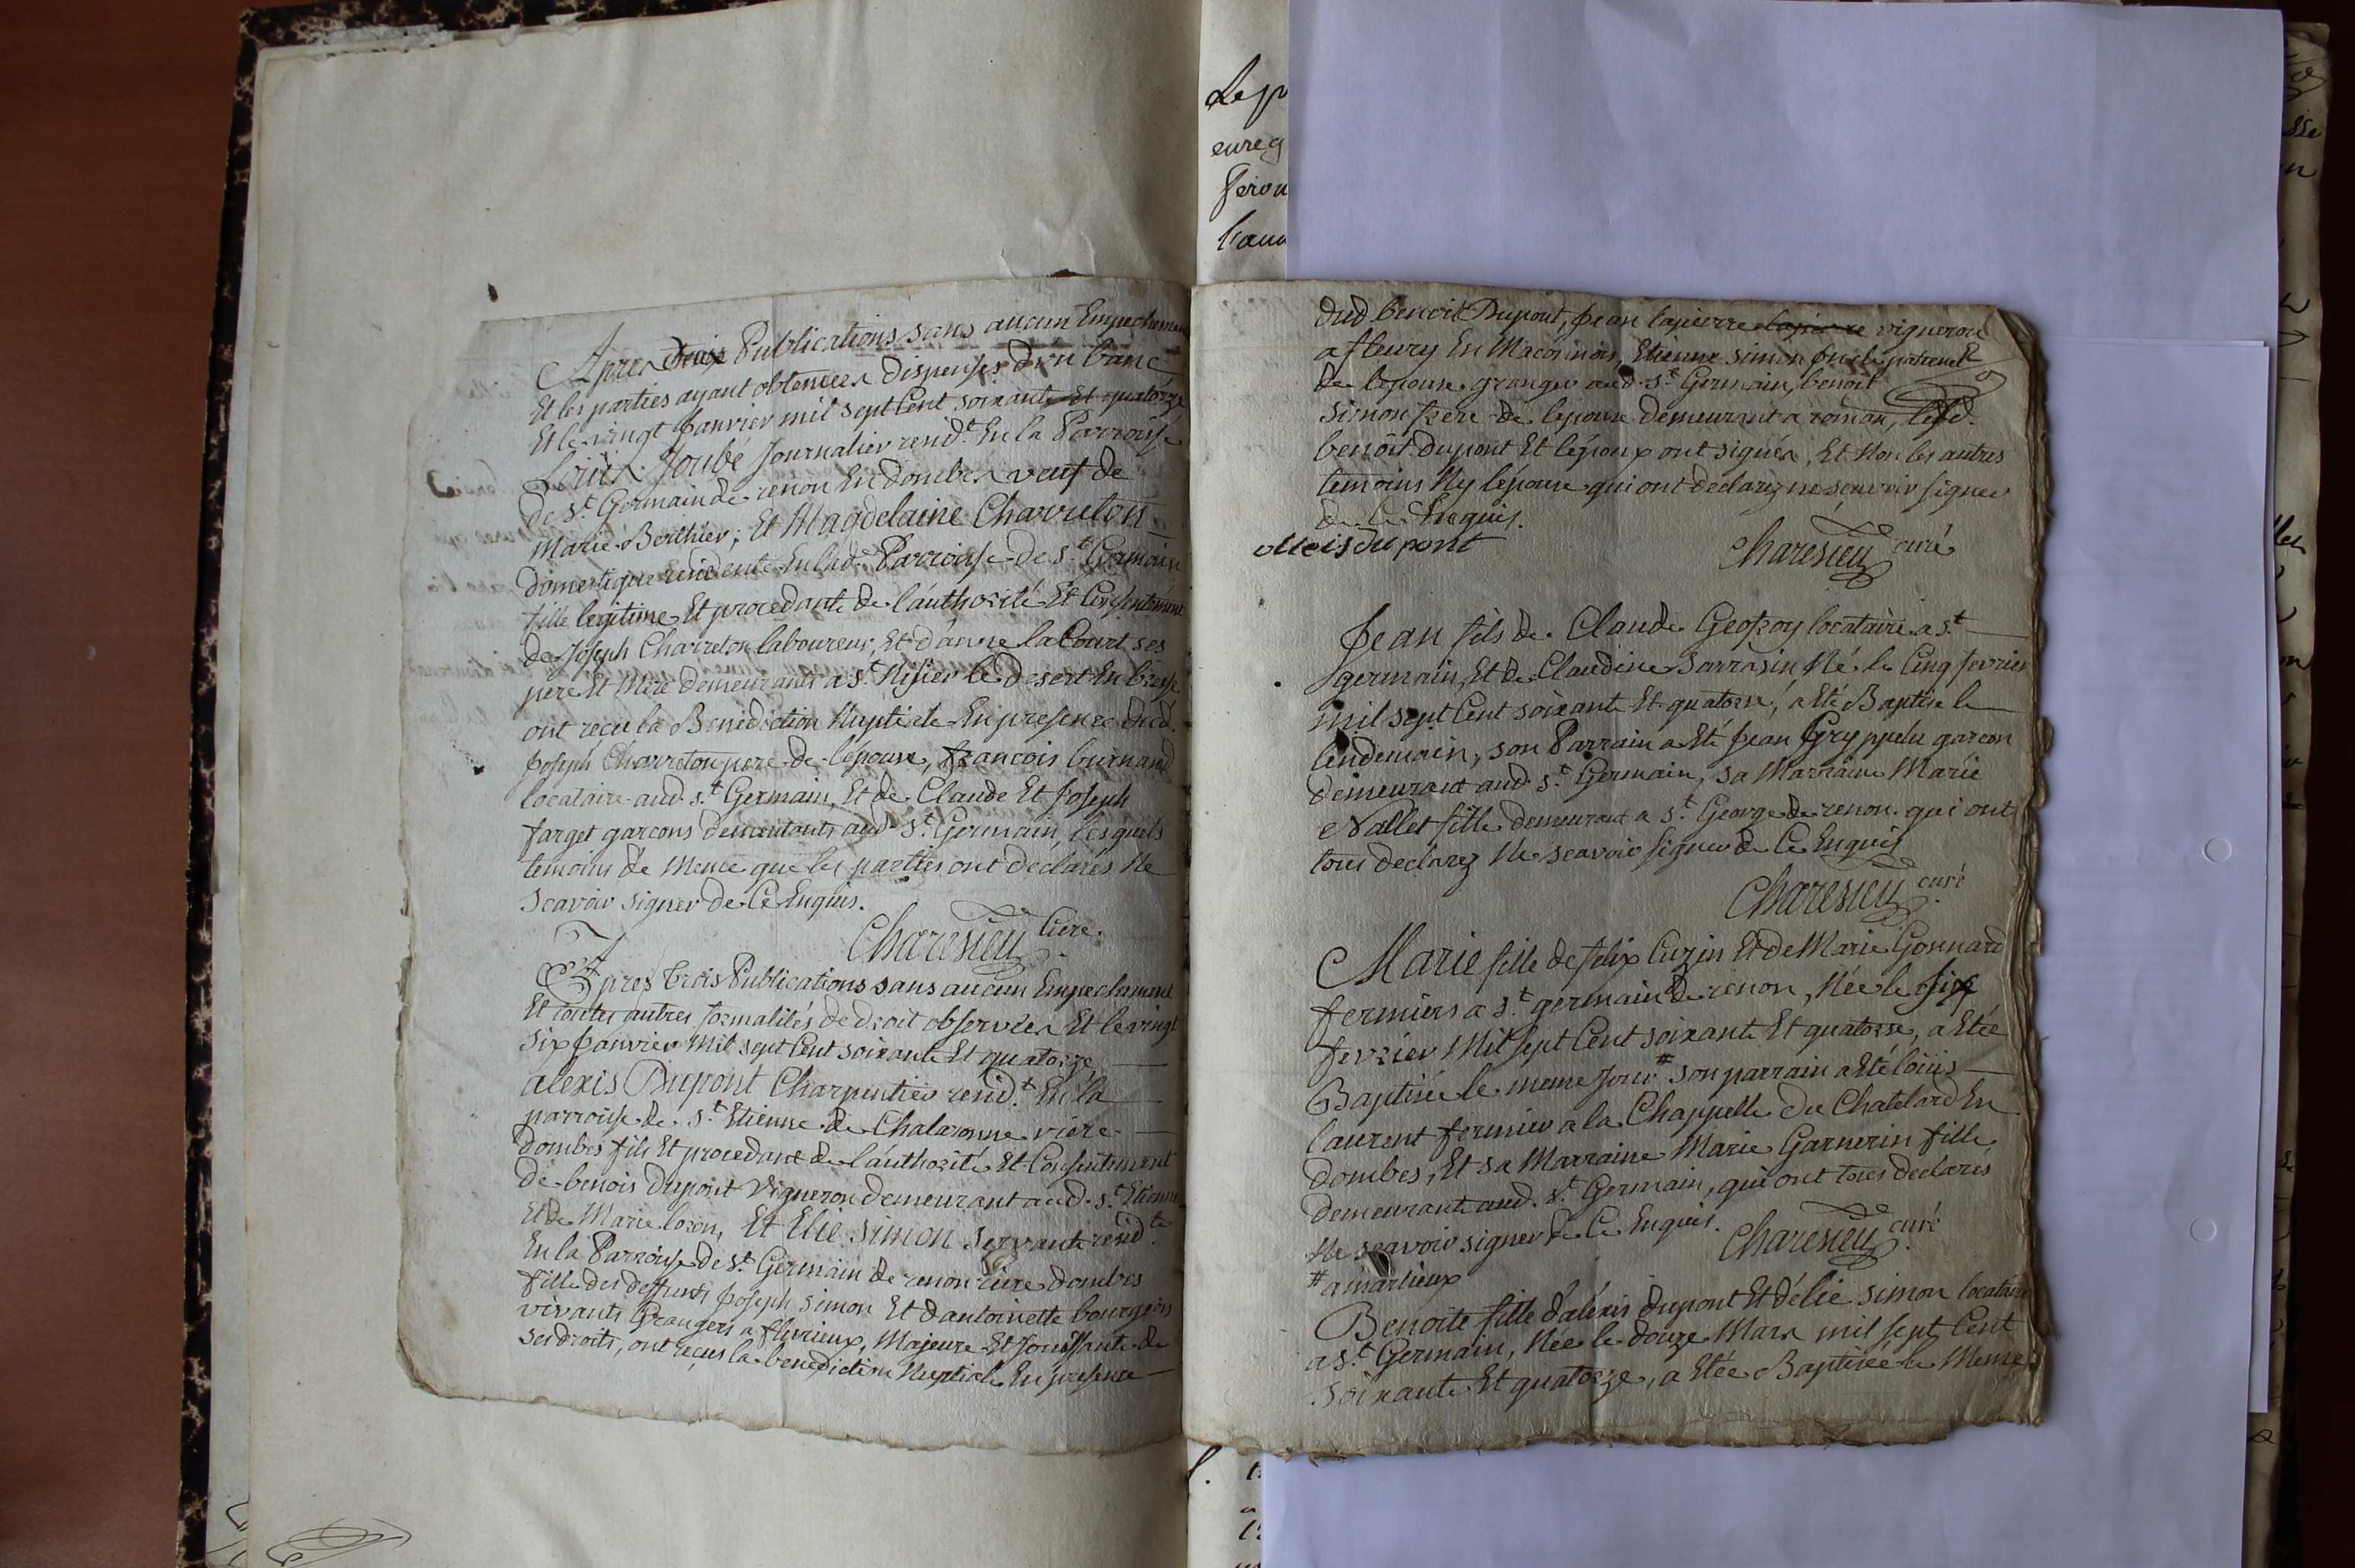 Apres trois Publications sans aucun Empechement
Et les parties ayant obtenues dispenses d'un banc
Et le vingt Janvier mil sept Cent soixante Et quatorze
Loüis Joubé Journalier resid.t En la Parroisse
de S.t Germain de renon En Dombes veuf de
Marie Berthier; Et Magdelaine Charreton
Domestique residente En lad. Parroisse de S.t Germain
fille legitime Et procedante de l'authorité Et Consentement
de Joseph Charreton laboureur, Et d'anne la Court ses
pere Et Mere demeurants a S.t Nisier le desert En bresse
ont recu la Benediction Nuptiale En presence dud.
Joseph Charreton pere de l'epouse, francois buirnand
locataire aud. S.t Germain, Et de Claude Et Joseph
farget garcons demeurants aud. S.t Germain, lesquels
temoins de Meme que les parties ont declarés Ne
Scavoir signer de Ce Enquis.
Charesieu Curé.
Apres trois Publications sans aucun Empechement
Et toutes autres formalités de droit observées Et le vingt
Six Janvier Mil sept Cent soixante Et quatorze
alexis Dupont Charpentier resid.t En la
parroisse de S.t Etienne de Chalaronne
dombes fils Et procedant de l'authorité Et Consentement
de benois dupont Vigneron demeurant aud. S.t Etienne
Et de Marie loron, Et Elie Simon Servante resid.te
En la Parroisse de S.t Germain de renon dombes
fille des deffunts Joseph Simon Et d'antoinette bourgeois
vivants Grangers a flurieux, Majeure Et Jouissante de
ses droits, ont reçus la benediction Nuptiale En presence
dud benoit Dupont, Jean lapierre lapierre vigneron
a fleury En Maconnois, Etienne Simon oncle paternel
de l'epouse granger aud. S.t Germain, benoit
Simon frere de l'epouse demeurant a roman, led.
benoit dupont Et l'epoux ont signés, Et Non les autres
temoins Ny l'epouse qui ont declarez ne scavoir signer
de Ce Enquis.
alleisdupont Charesieu curé
Jean fils de Claude Geofroy locataire a S.t
germain, Et de Claudine Sarrasin, Né le Cinq fevrier
mil sept Cent soixante Et quatorze, a Eté Baptisé le
lendemain, son Parrain a Eté Jean Gryppelu garcon
demeurant aud. S.t Germain, sa Marraine Marie
Nallet fille demeurant a S.t George de renon qui ont
tous declarez Ne scavoir signer de Ce Enquis
Charesieu curé
Marie fille de felix Cuzin Et de Marie Gonnard
fermiers a S.t germain de renon, Née le Six
fevrier Mil sept Cent soixante Et quatorze, a Etée
Baptisée le meme Jour # son parrain a Eté loüis
laurent fermier a la Chappelle du Chatelard En
dombes, Et sa Marraine Marie Garnerin fille
demeurante aud. S.t Germain, qui ont tous declarés
Ne scavoir signer de Ce Enquis. Charesieu curé
# a marlieux
Benoite fille d'aléxis dupont Et d'élie simon locataires
a S.t Germain, Née le douze Mars mil sept Cent
soixante Et quatorze, a Etée Baptisée le Meme